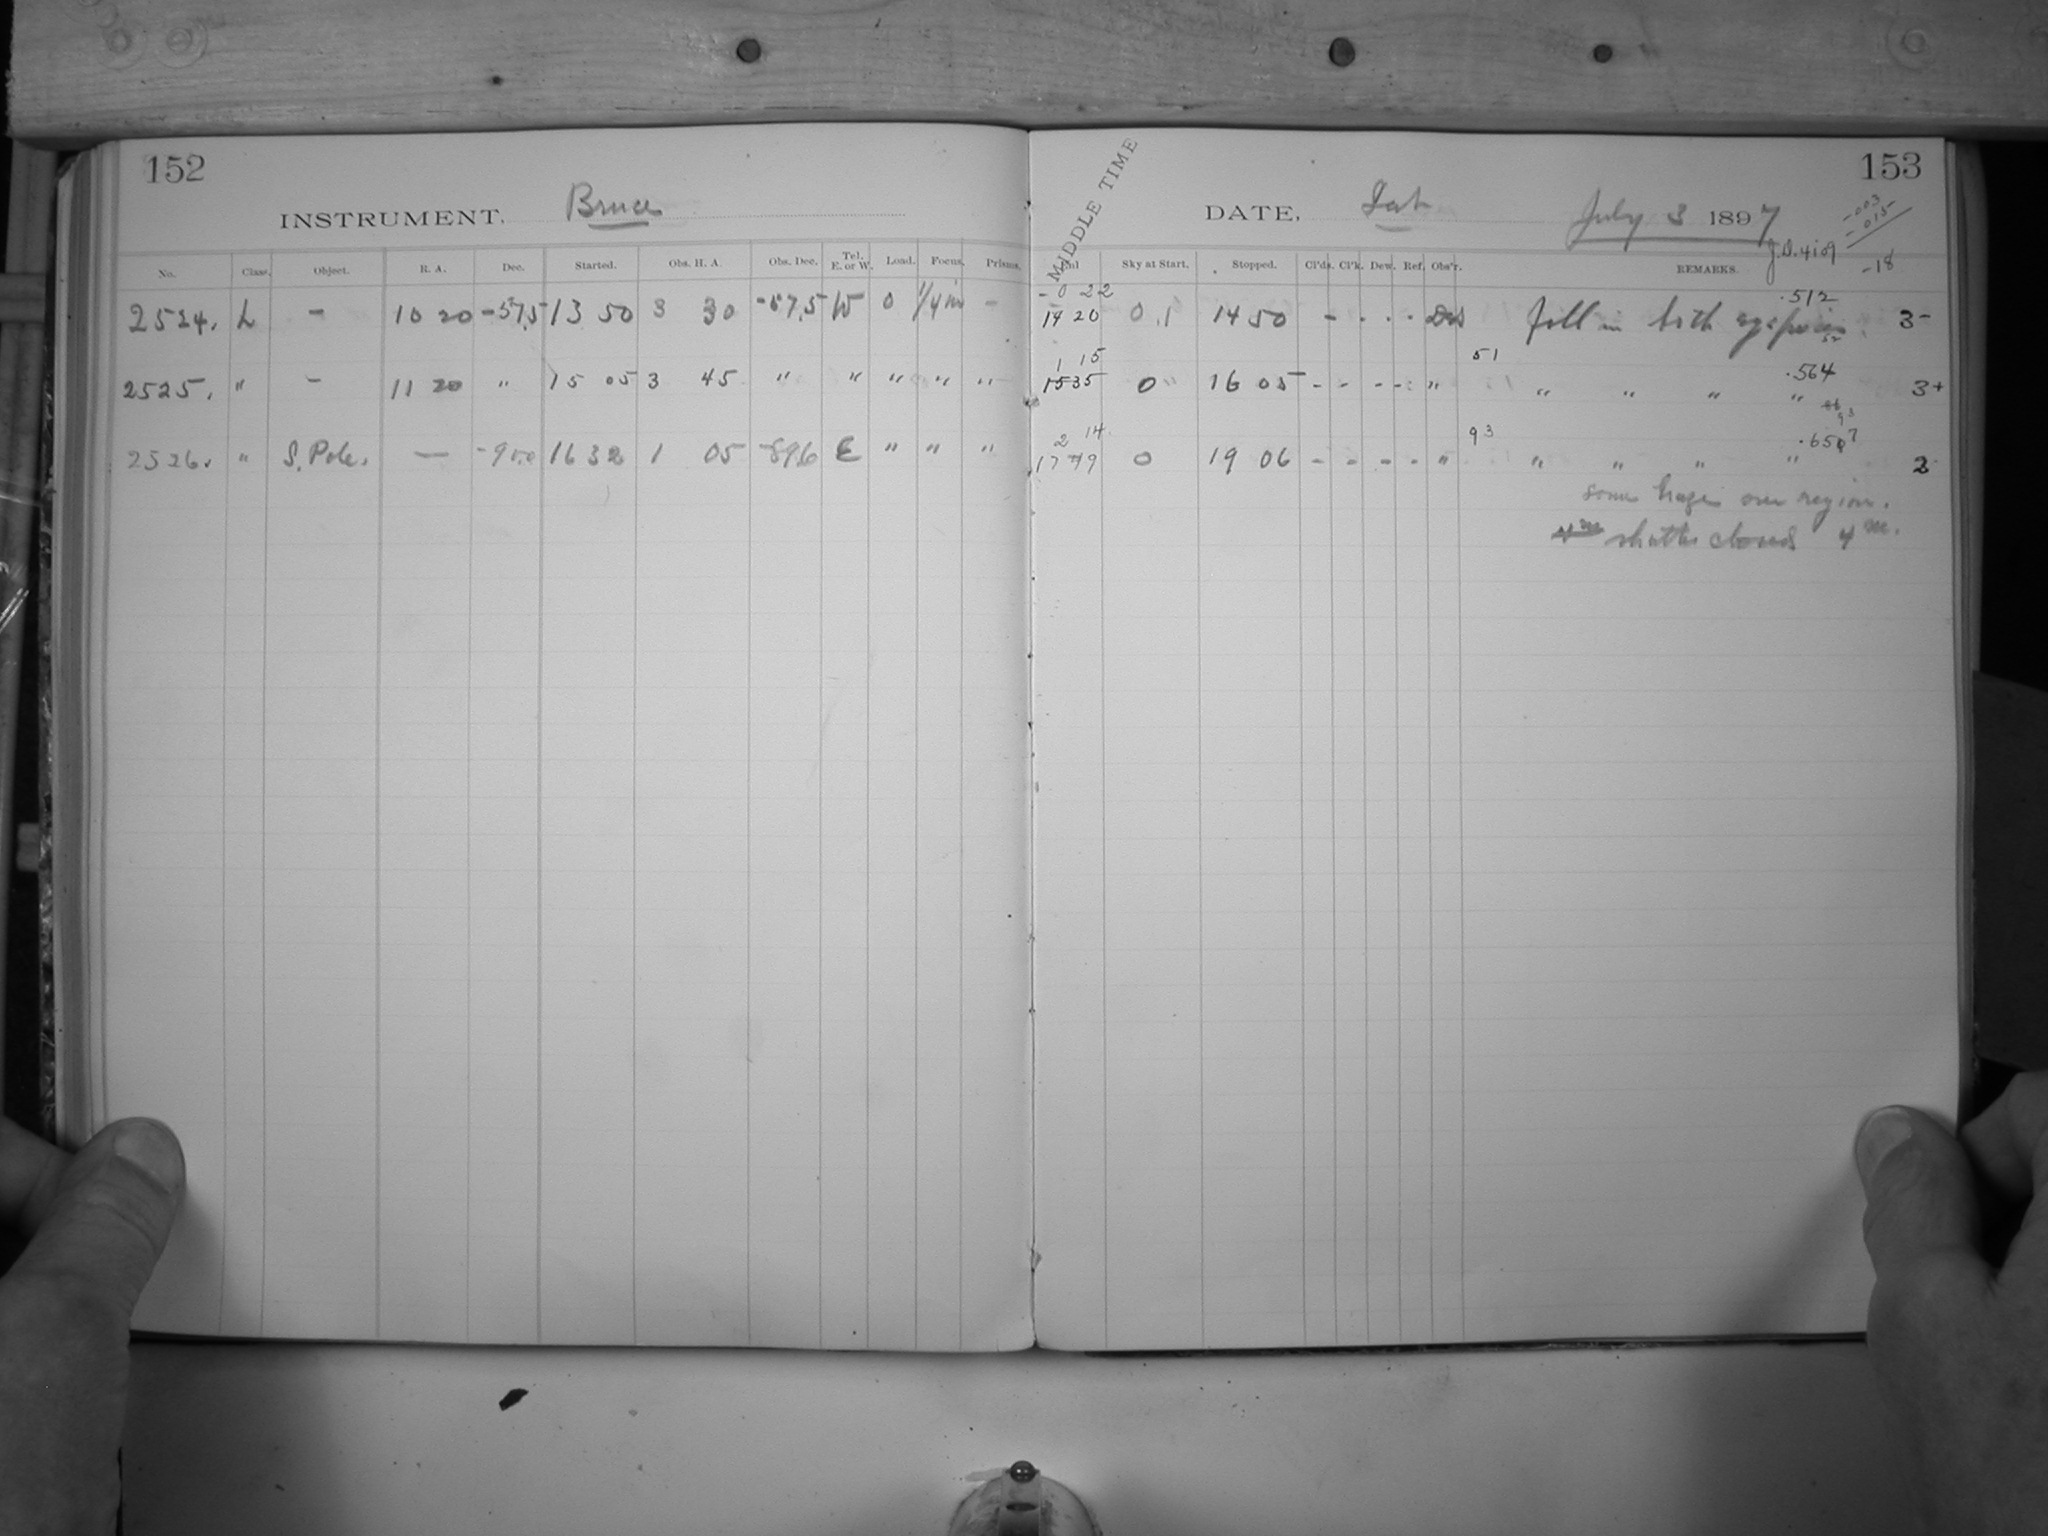 152
INSTRUMENT. Bruce
No. Class. Object. R. A. Dec. Started. Obs. H. A. Obs. Dec. Tel. E. or W. Load. Focus. Prisms.
2524. L - 10 20 -57.5 13 50 3 30 -57.5 W 0 1/4 in -
2525. " - 11 20 " 15 05 3 45 " " " " "
2526. " S. Pole. — -90.0 16 32 1 05 -89.6 E " " "
153
MIDDLE TIME
DATE, Sat July 3 1897
-.003
-.015
-18
J.D. 4109
Sky at Start. Stopped. Cl'ds. Cl'k. Dew. Ref. Obs'r. REMARKS.
-0 22 .512
14 20 0.1 14 50 - . . . Fell in both 3-
1 15 51 .564
15 35 0 16 05 - - - - " " " " " 3+
2 14 93
0 19 06 - - - - " " " " " 2
some haze over region.
shutter closed 4m.